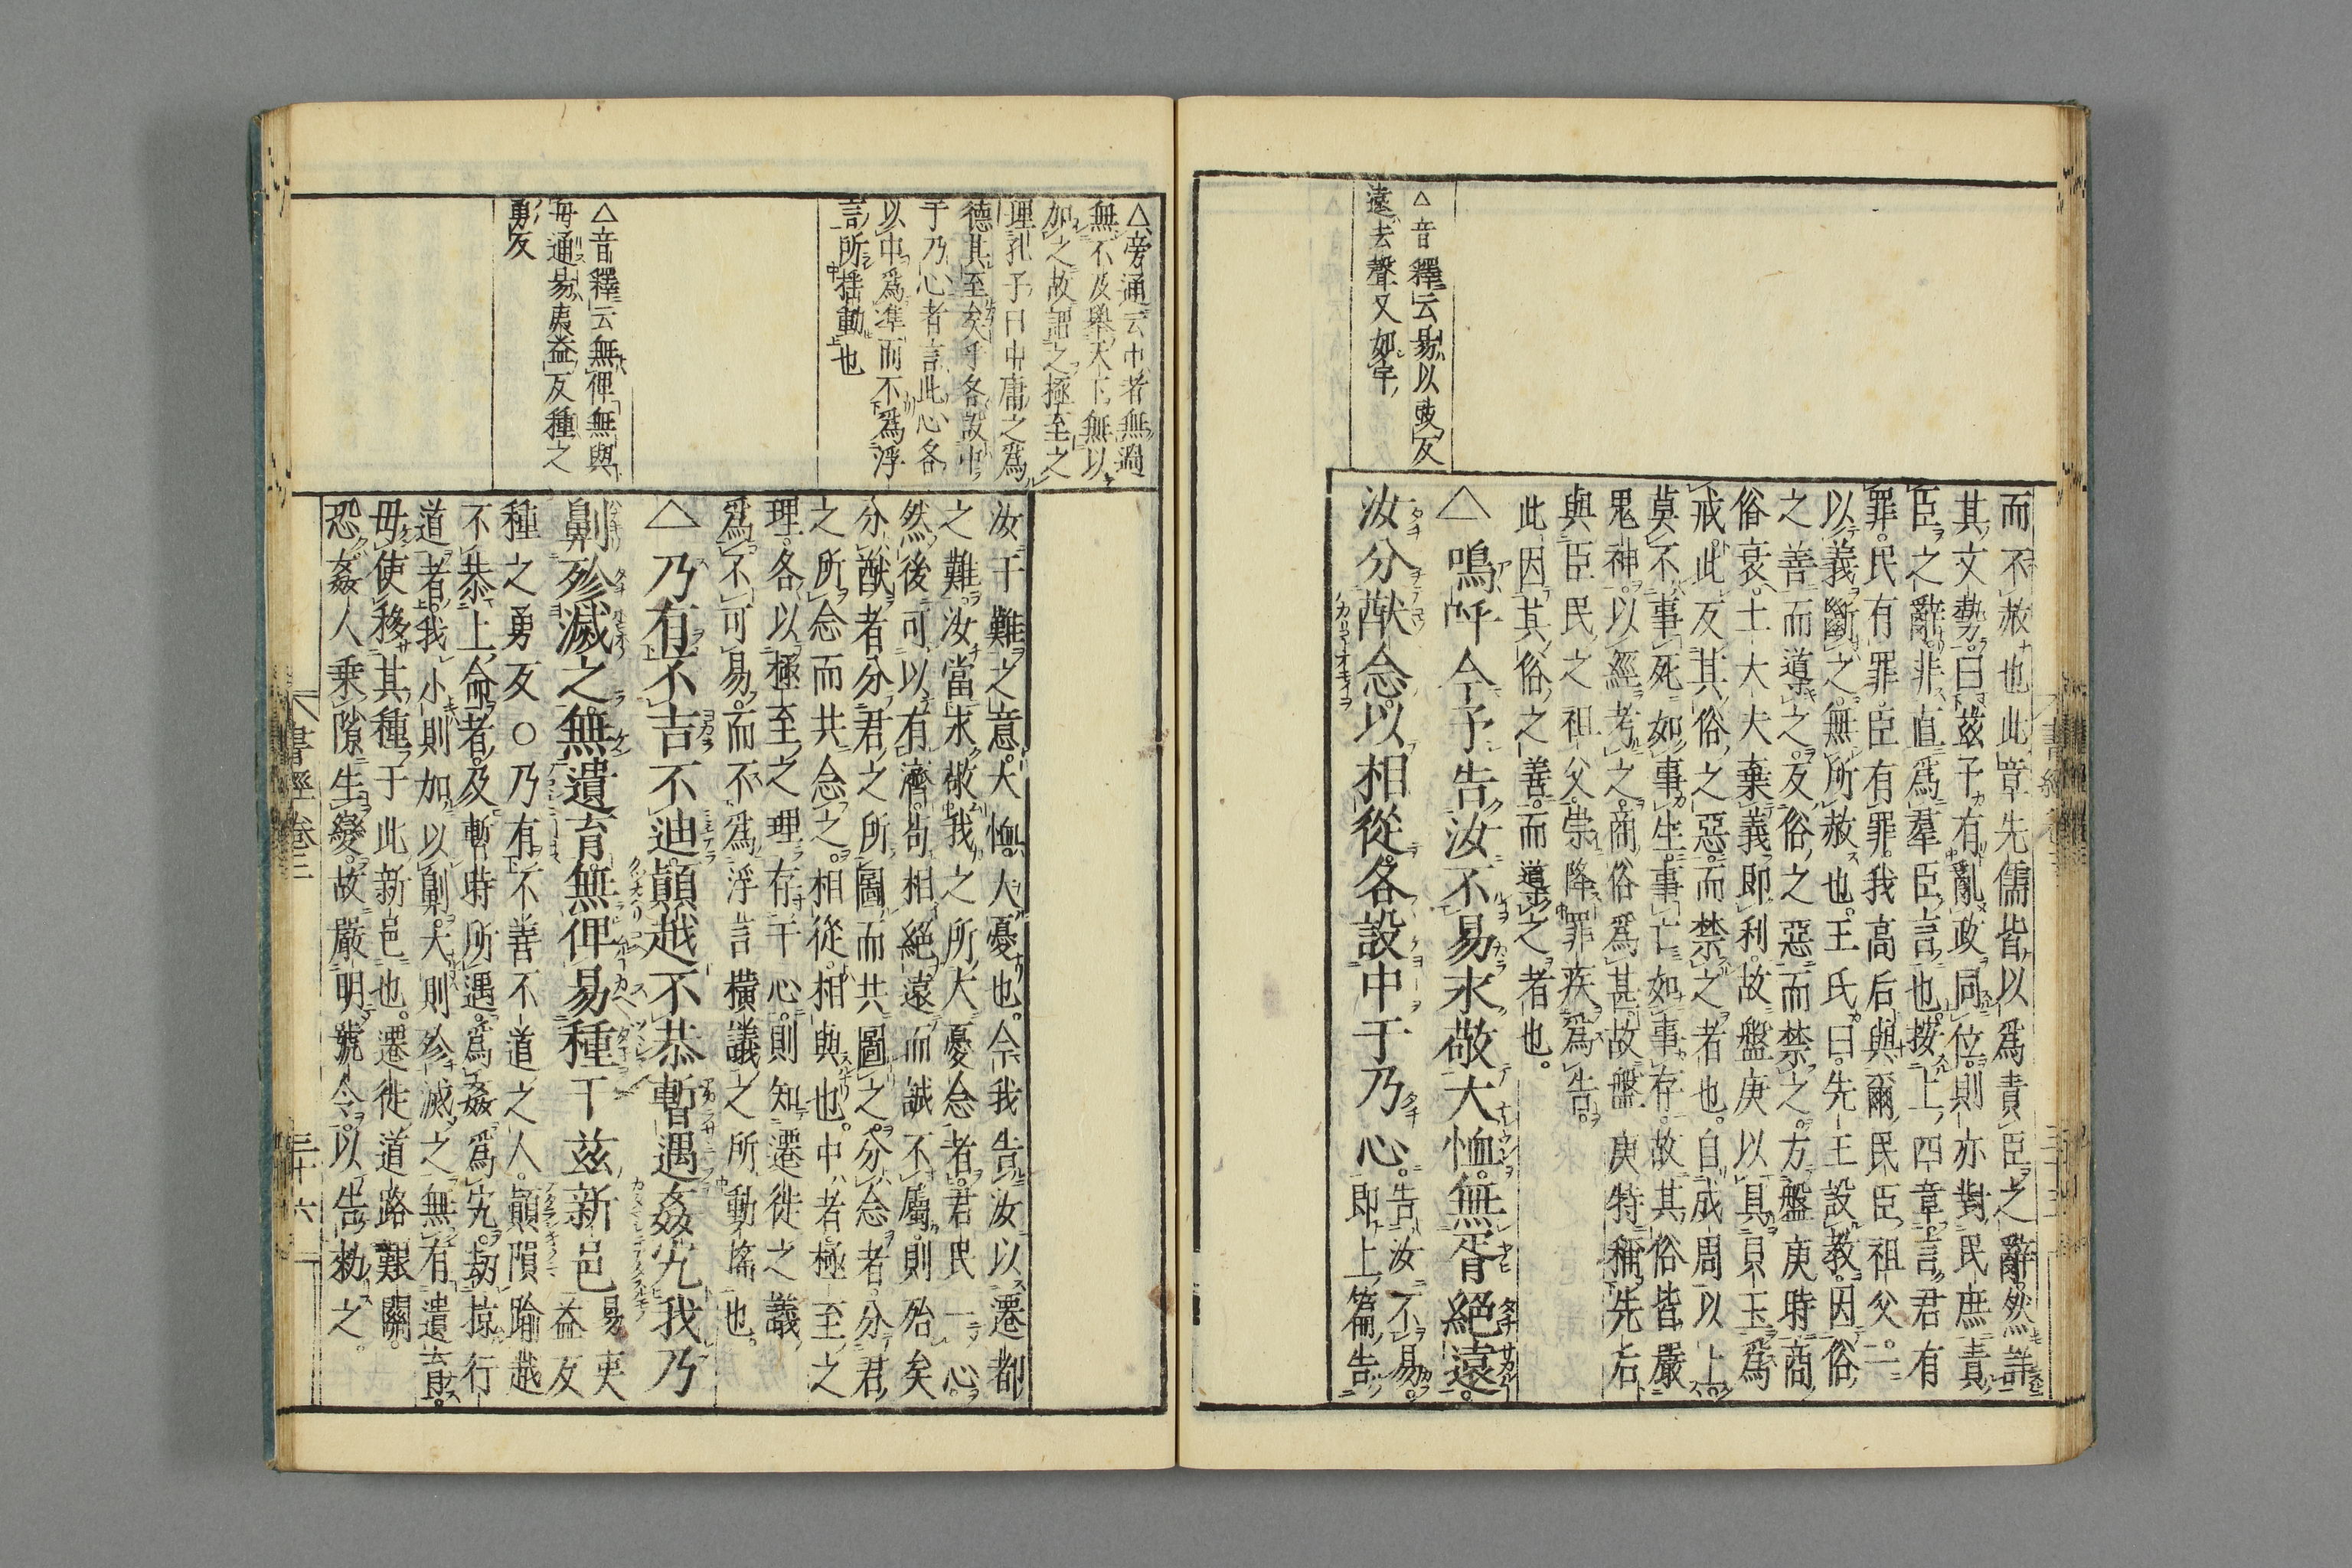 △音釋云易以豉反
遠去聲又如字
而不赦也此章先儒皆以爲責臣之辭然詳
其文勢曰茲予有亂政同位則亦對民庶責
臣之辭非直爲羣臣言也按上四章言君有
罪民有罪臣有罪我高后與爾民臣祖父一
以義斷之無所赦也王氏曰先王設敎因俗
之善而道之反俗之惡而禁之方盤庚時商
俗衰士大夫棄義即利故盤庚以具貝玉爲
戒此反其俗之惡而禁之者也自成周以上
莫不事死如事生事亡如事存故其俗皆嚴
鬼神以經考之商俗爲甚故盤庚特稱先后
與臣民之祖父崇降罪疾爲告
此因其俗之善而道之者也
△嗚呼今予告汝不易永敬大恤無胥絕遠
汝分猷念以相從各設中于乃心
告汝不易
即上篇告
△旁通云中者無過
無不及舉天下無以
加之故謂之極至之
理孔子曰中庸之爲
德其至矣乎各設中
于乃心者言此心各
以中爲準而不爲浮
言所搖動也
△音釋云無俾無與
毋通易夷益反種之
勇反
汝于難之意大恤大憂也今我告汝以遷都
之難汝當永敬我之所大憂念者君民一心
然後可以有濟苟相絕遠而誠不屬則殆矣
分猷者分君之所圖而共圖之分念者分君
之所念而共念之相從相與也中者極至之
理各以極至之理存于心則知遷徙之議
爲不可易而不爲浮言橫議之所動搖也
△乃有不吉不迪顚越不恭暫遇姦宄我乃
劓殄滅之無遺育無俾易種于茲新邑
易夷
益反
種之勇反○乃有不善不道之人顚隕踰越
不恭上命者及暫時所遇爲姦爲宄劫掠行
道者我小則加以劓大則殄滅之無有遺育
毋使移其種于此新邑也遷徙道路艱關
恐姦人乘隙生變故嚴明號令以告勅之
書經卷三
三十六